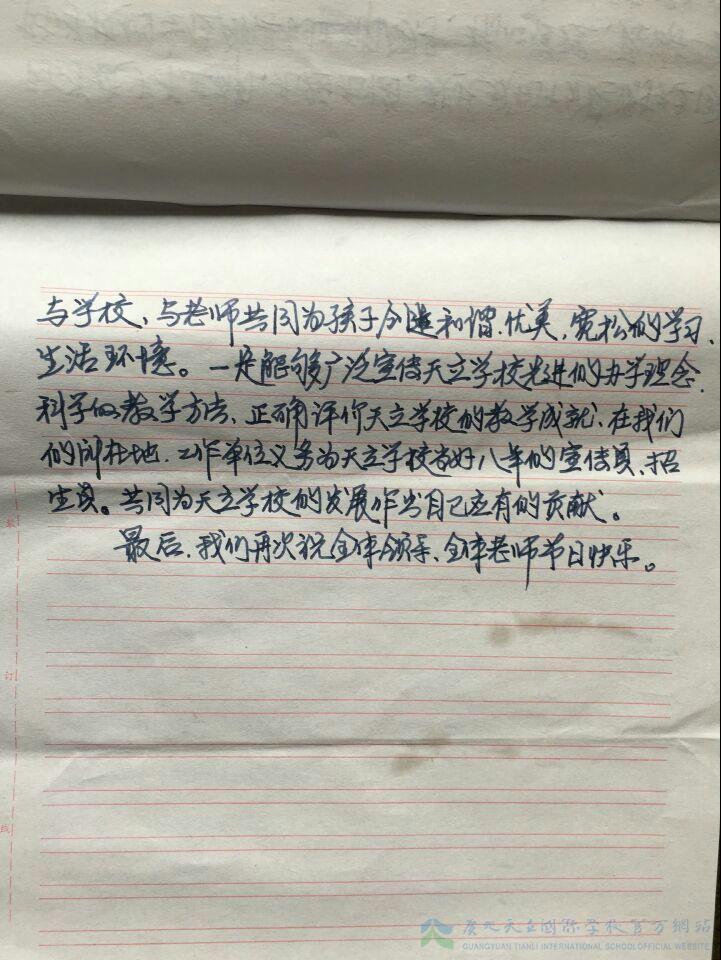 与学校、与老师共同为孩子创造和谐、优美、宽松的学习、
生活环境。一定能够广泛宣传天立学校先进的办学理念、
科学的教学方法、正确评价天立学校的教学成就、在我们
的所在地、工作单位义务为天立学校当好八年的宣传员、招
生员。共同为天立学校的发展作出自己应有的贡献。
最后、我们再次祝全体领导、全体老师节日快乐。
装
订
线
广元天立国际学校官方網站
GUANGYUAN TIANLI INTERNATIONAL SCHOOL OFFICIAL WEBSITE